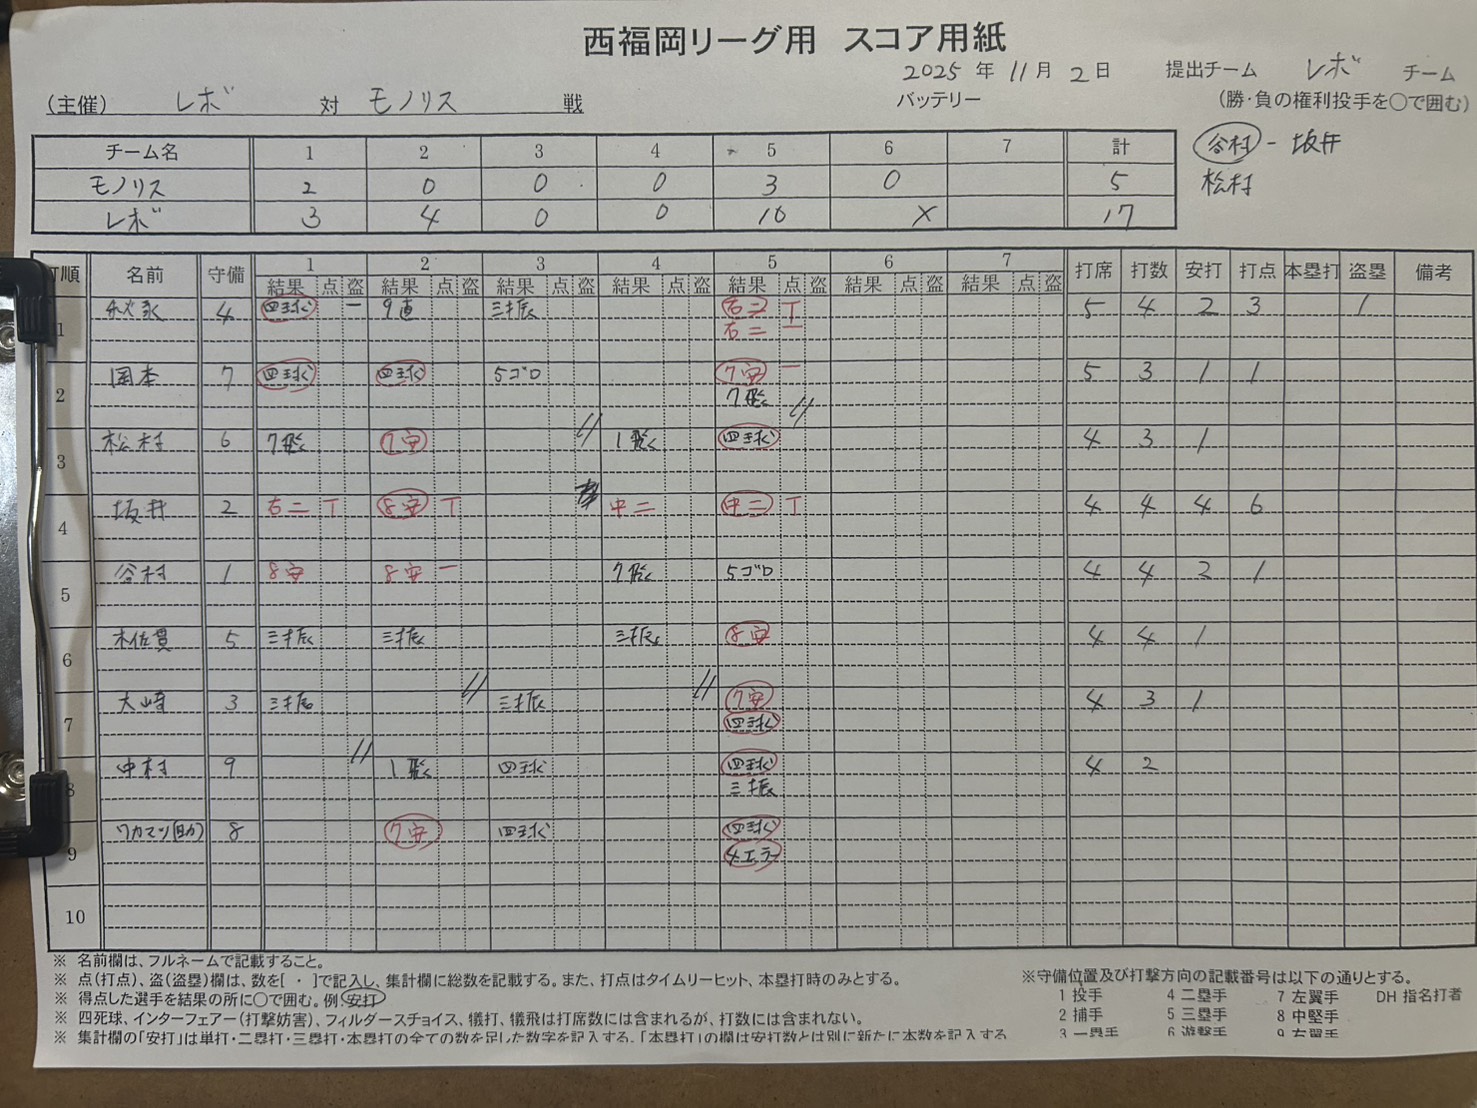 西福岡リーグ用 スコア用紙
2025 年 11 月 2 日 提出チーム レボ チーム
(主催) レボ 対 モノリス 戦 バッテリー (勝・負の権利投手を○で囲む)
谷村 - 坂井
松村
チーム名 1 2 3 4 5 6 7 計
モノリス 2 0 0 0 3 0 5
レボ 3 4 0 0 10 X 17
打順 名前 守備 1 2 3 4 5 6 7 打席 打数 安打 打点 本塁打 盗塁 備考
結果 点 盗 結果 点 盗 結果 点 盗 結果 点 盗 結果 点 盗 結果 点 盗 結果 点 盗
1 秋永 4 四球 一 9直 三振 右二 T 5 4 2 3 1
右二 一
2 岡本 7 四球 四球 5ゴロ 7安 一 5 3 1 1
7飛
3 松村 6 7飛 7安 1飛 四球 4 3 1
4 坂井 2 右二 T 8安 T 中二 中二 T 4 4 4 6
5 谷村 1 8安 8安 一 7飛 5ゴロ 4 4 2 1
6 木佐貫 5 三振 三振 三振 8安 4 4 1
7 大崎 3 三振 三振 7安 4 3 1
四球
8 中村 9 1飛 四球 四球 4 2
三振
9 ワカマツ(助) 8 7安 四球 四球
4エラー
10
※ 名前欄は、フルネームで記載すること。
※ 点(打点)、盗(盗塁)欄は、数を[ ・ ]で記入し、集計欄に総数を記載する。また、打点はタイムリーヒット、本塁打時のみとする。
※ 得点した選手を結果の所に○で囲む。例 安打
※ 四死球、インターフェアー(打撃妨害)、フィルダースチョイス、犠打、犠飛は打席数には含まれるが、打数には含まれない。
※ 集計欄の「安打」は単打・二塁打・三塁打・本塁打の全ての数を足した数字を記入する。「本塁打」の欄は安打数とは別に新たに本数を記入する
※守備位置及び打撃方向の記載番号は以下の通りとする。
1 投手 4 二塁手 7 左翼手 DH 指名打者
2 捕手 5 三塁手 8 中堅手
3 一塁手 6 遊撃手 9 右翼手